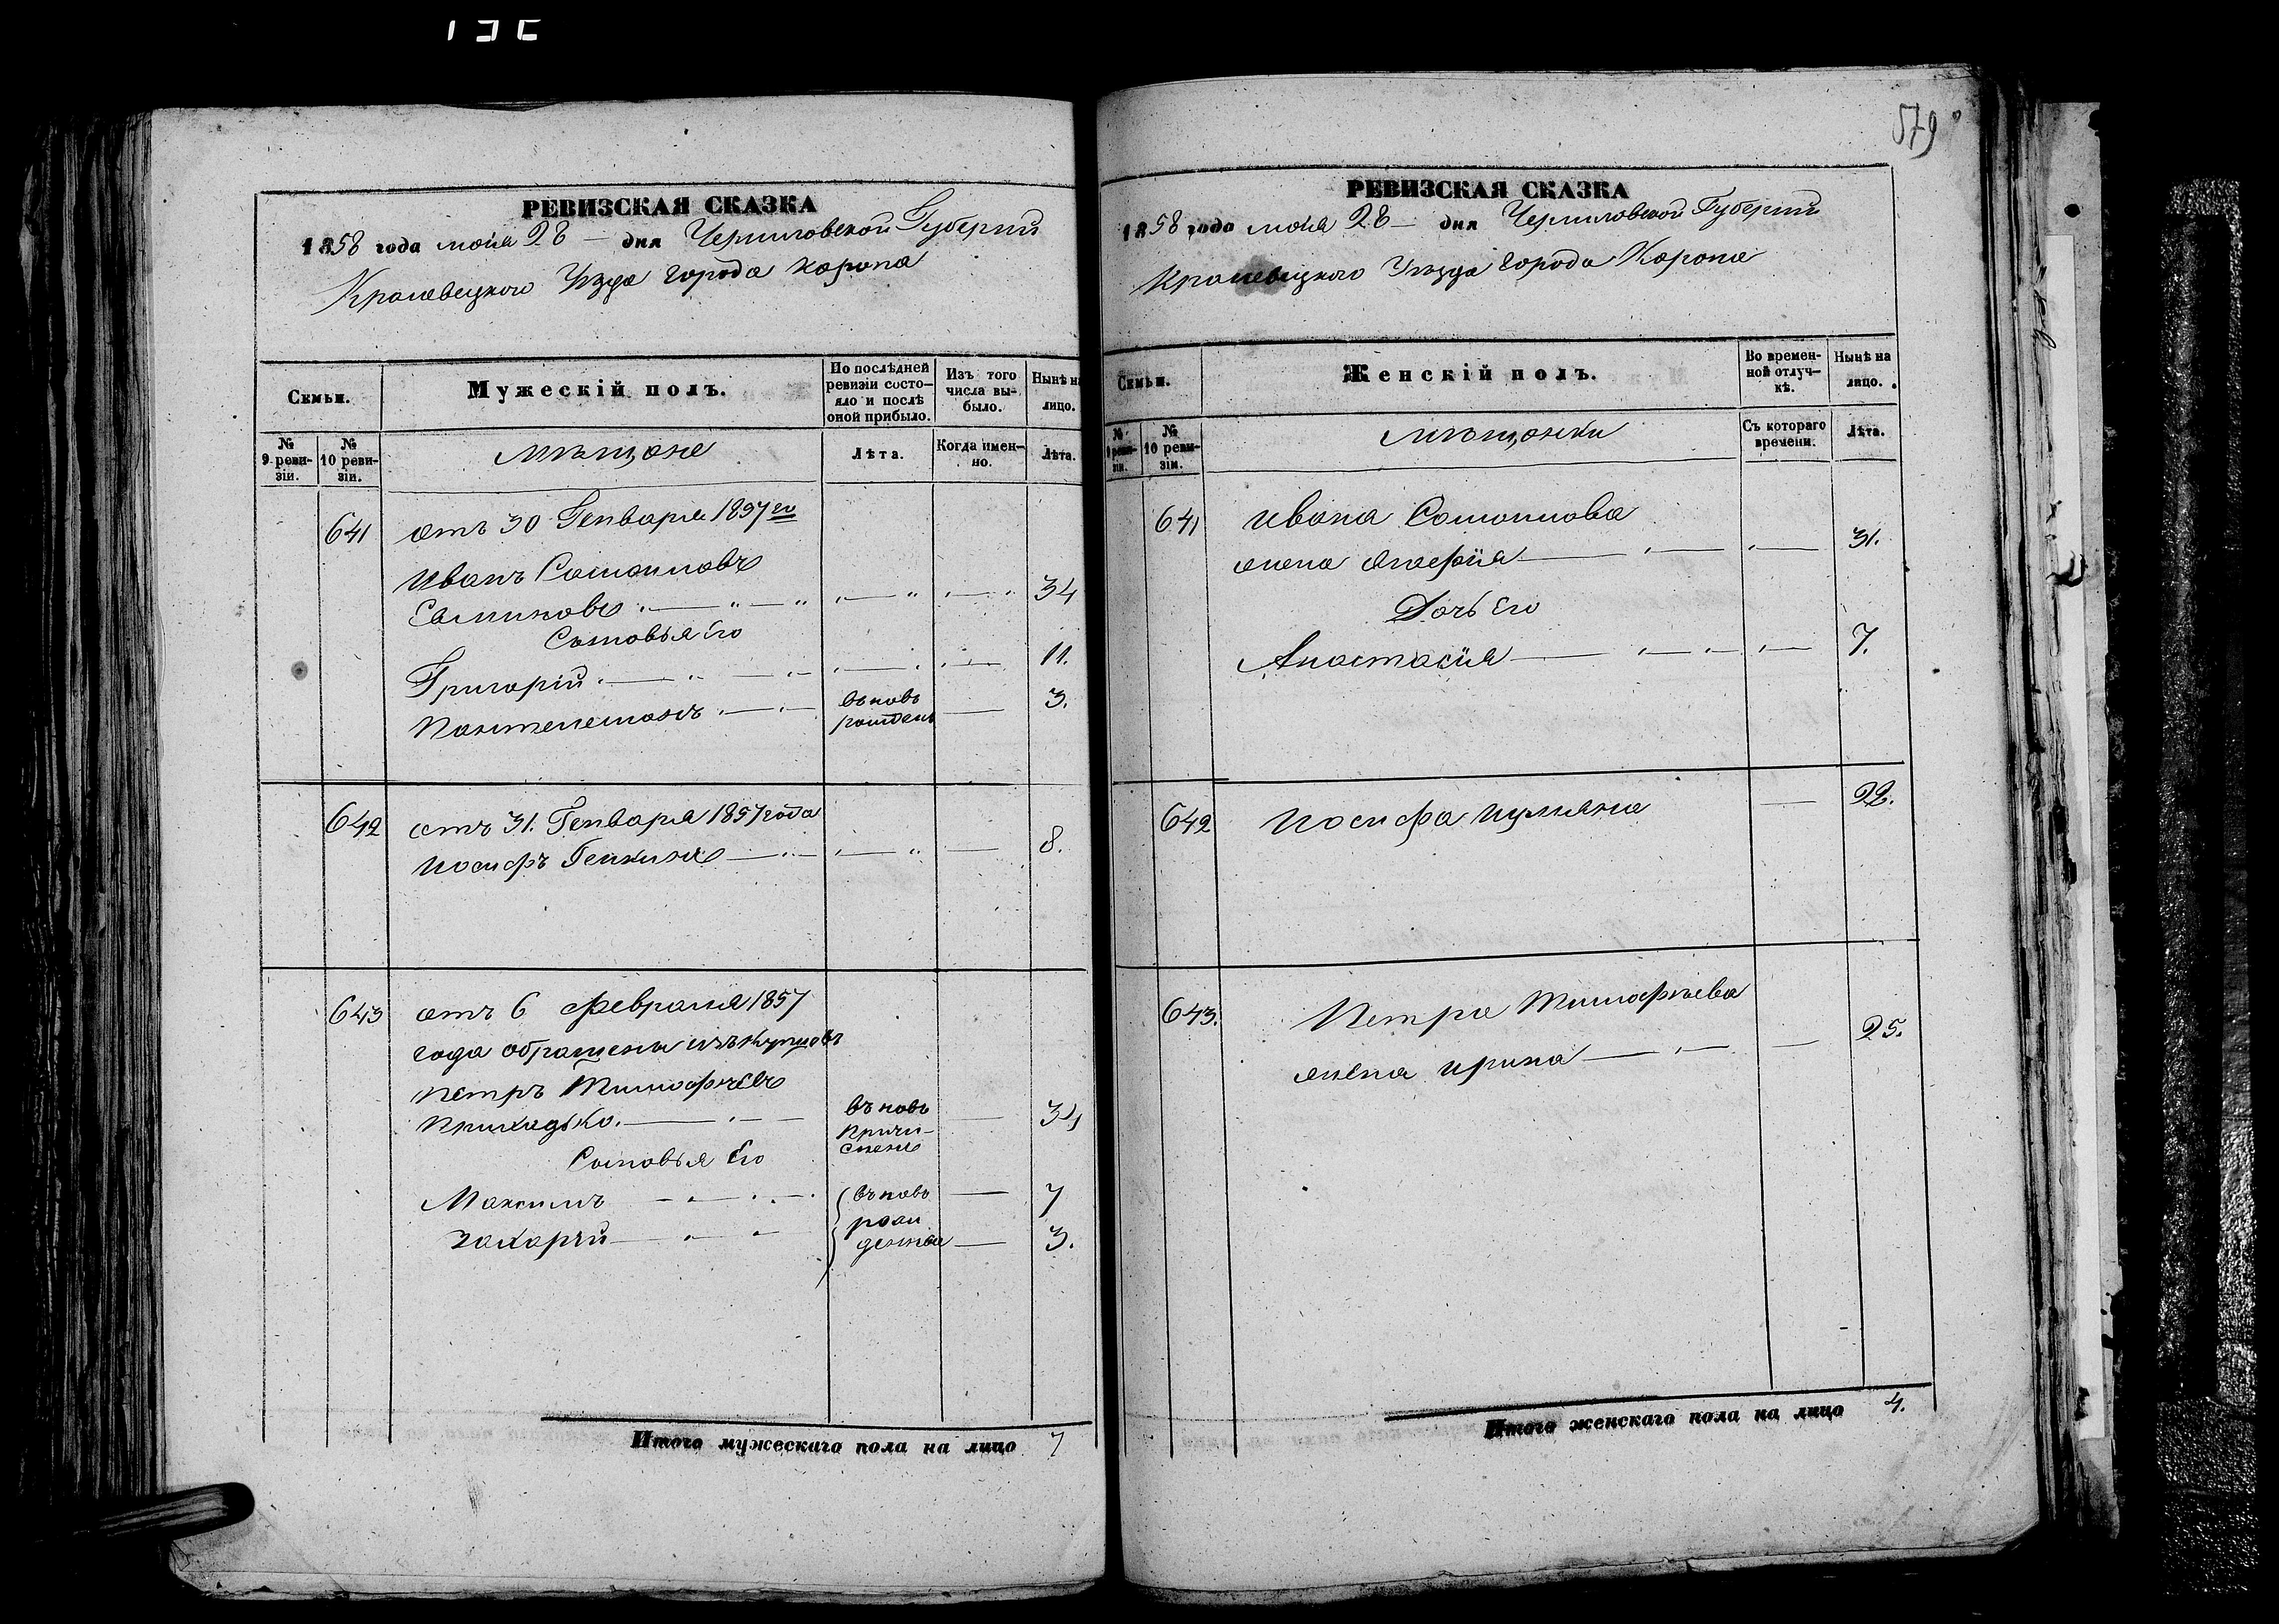 579
РЕВИЗСКАЯ СКАЗКА
1858 года мая 28 — дня Черниговской Губерний
Кролевецкого Уезда города Коропа
Семьи.
Мужескій полъ.
По послѣдней ревизіи состо-
яло и послѣ оной прибыло.
Изъ того числа вы-
было.
Нынѣ на лицо.
№ 9 реви-
зіи.
№ 10 реви-
зіи.
мѣщане
Лѣта.
Когда имен-
но.
Лѣта.
641 отъ 30 Генваря 1857 го
Иванъ
34
Сыновья Его
Григорій 11.
Пантелемонъ въновь рожденъ — 3.
642 отъ 31. Генваря 1857 года
Иосифъ 8.
643 отъ 6 февраля 1857
года обращены изъ купцовъ
Петръ Тимофѣевъ
Приходько. въновь причи-
сленъ — 34
Сыновья Его
Максимъ въновь — 7
Захарій рож
денные — 3.
Итого мужескаго пола на лицо 7
РЕВИЗСКАЯ СКАЗКА
1858 года мая 28 — дня Черниговской Губерний
Кролевецкого Уезда города Коропа
Семьи.
Женскій полъ.
Во времен-
ной отлуч-
кѣ.
Нынѣ на лицо.
№ 9 реви-
зіи.
№ 10 реви-
зіи.
мѣщанки
Съ котораго времени.
Лѣта.
641 Ивана
жена Агафия 31.
Дочь Его
Анастасия 7.
642 Иосифа — 22.
643. Петра Тимофѣева
жена Ирина — 25.
Итого женскаго пола на лицо 4.